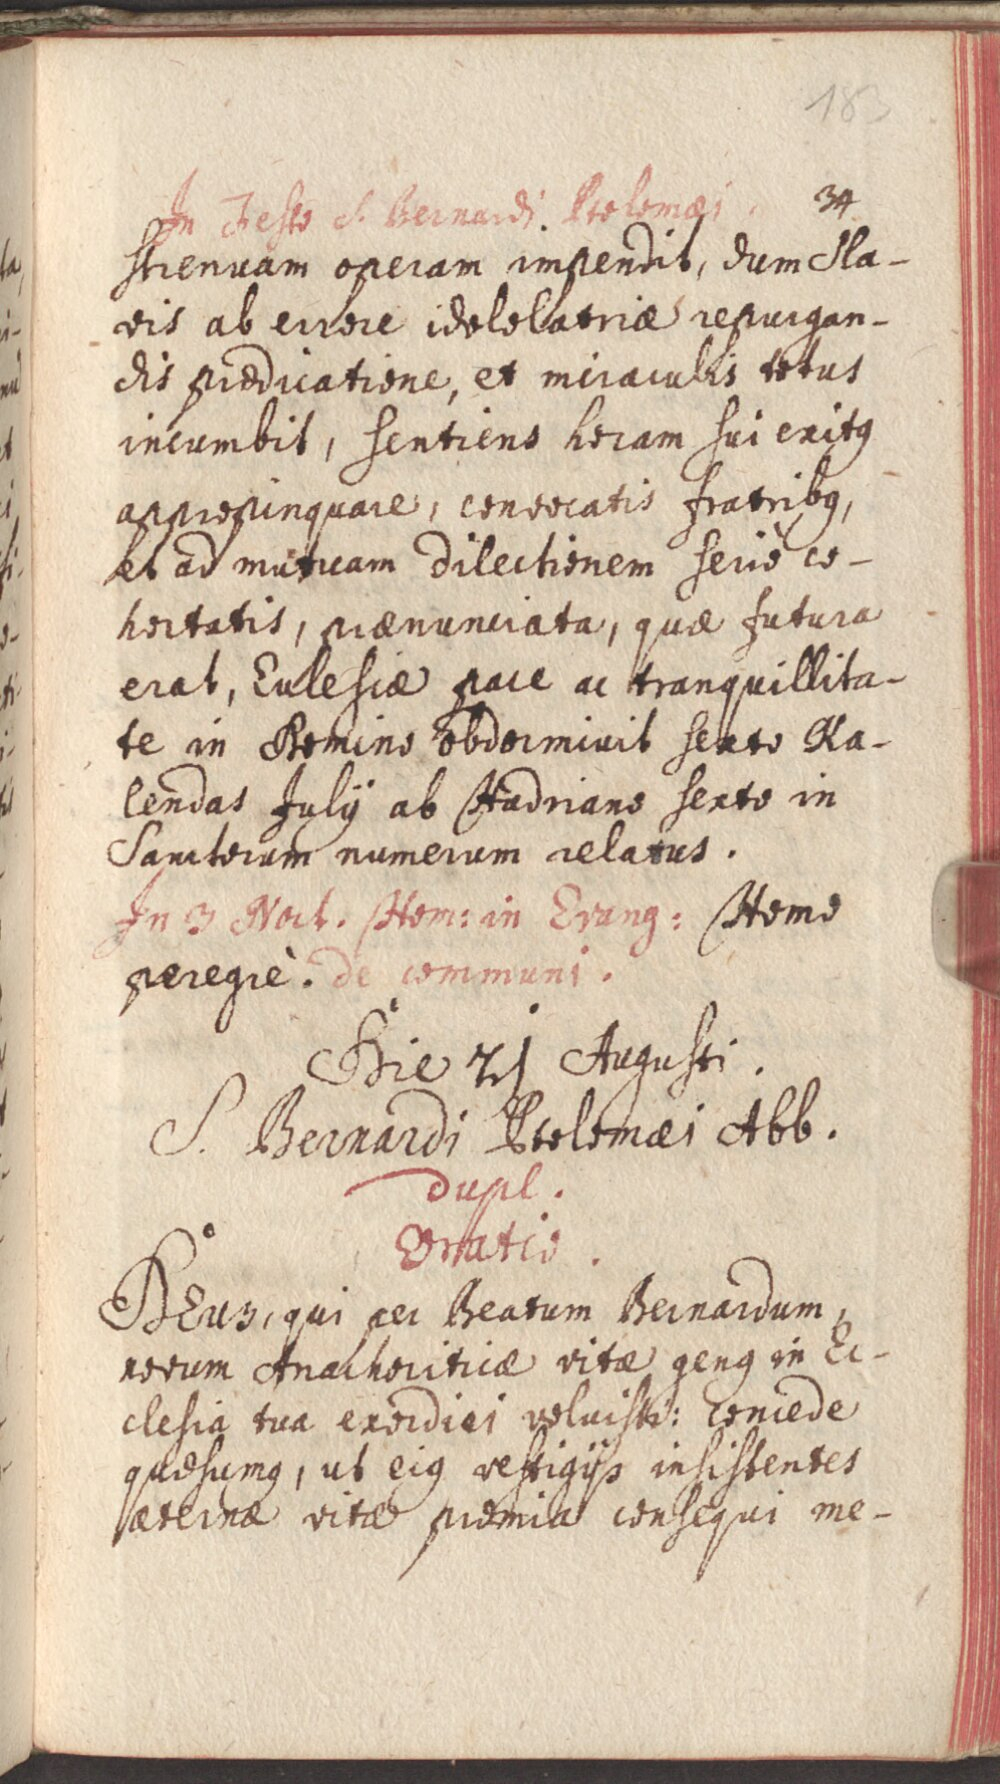 183
In Festo S. Bernardi Ptolomæi. 34
strenuam operam impendit, dum Sla-
vis ab errore idololatriæ repurgan-
dis prædicatione, et miraculis totus
incumbit, sentiens horam sui exitꝰ
appropinquare, convocatis fratribꝰ,
et ad mutuam dilectionem seriò co-
hortatis, prænunciata, quæ futura
erat, Eclesiæ pace ac tranquillita-
te in Domino obdormivit sexto Ka-
lendas Julij ab Hadriano sexto in
Sanctorum numerum relatus.
In 3 Noct. Hom: in Evang: Homo
peregrè. de communi.
Die 21 Augusti.
S. Bernardi Ptolomæi Abb.
dupl.
Oratio.
DEus, qui per Beatum Bernardum,
novum Anachoriticæ vitæ genꝰ in Ec-
clesia tua exordiri voluisti: concede
quæsumꝰ, ut eiꝰ vestigijs insistentes
æternæ vitæ præmia consequi me-